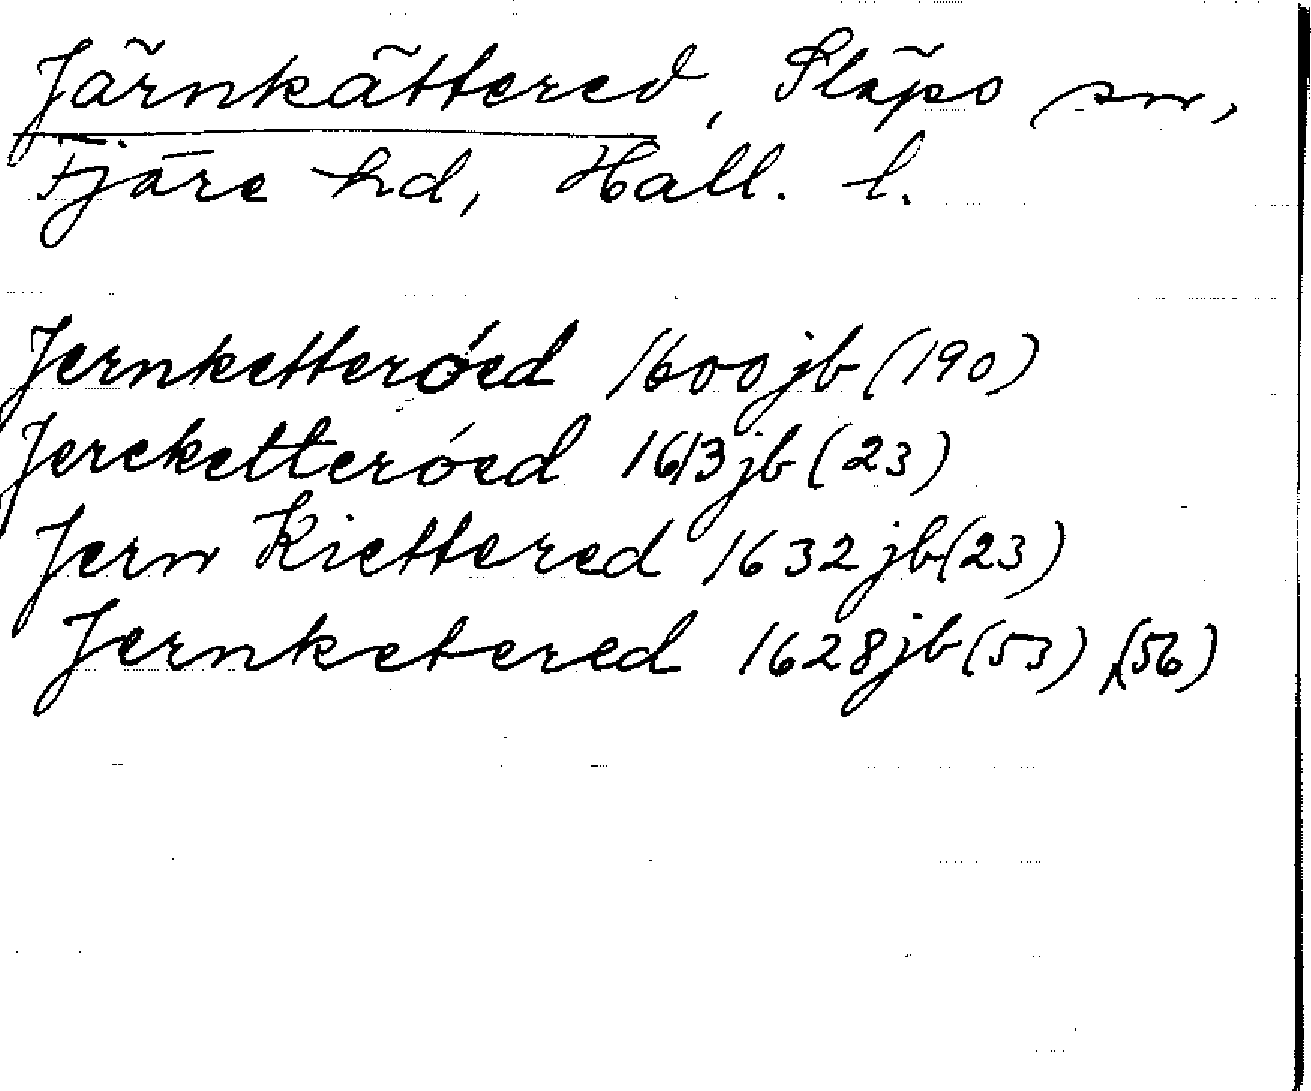 Järnkättered, Släps sn,
Fjäre hd, Hall. l.
Jernketteróed 1600 jb (190)
Jereketteróed 1613 jb (23)
Jern Kiettered 1632 jb (23)
Jernketered 1628 jb (53) (56)